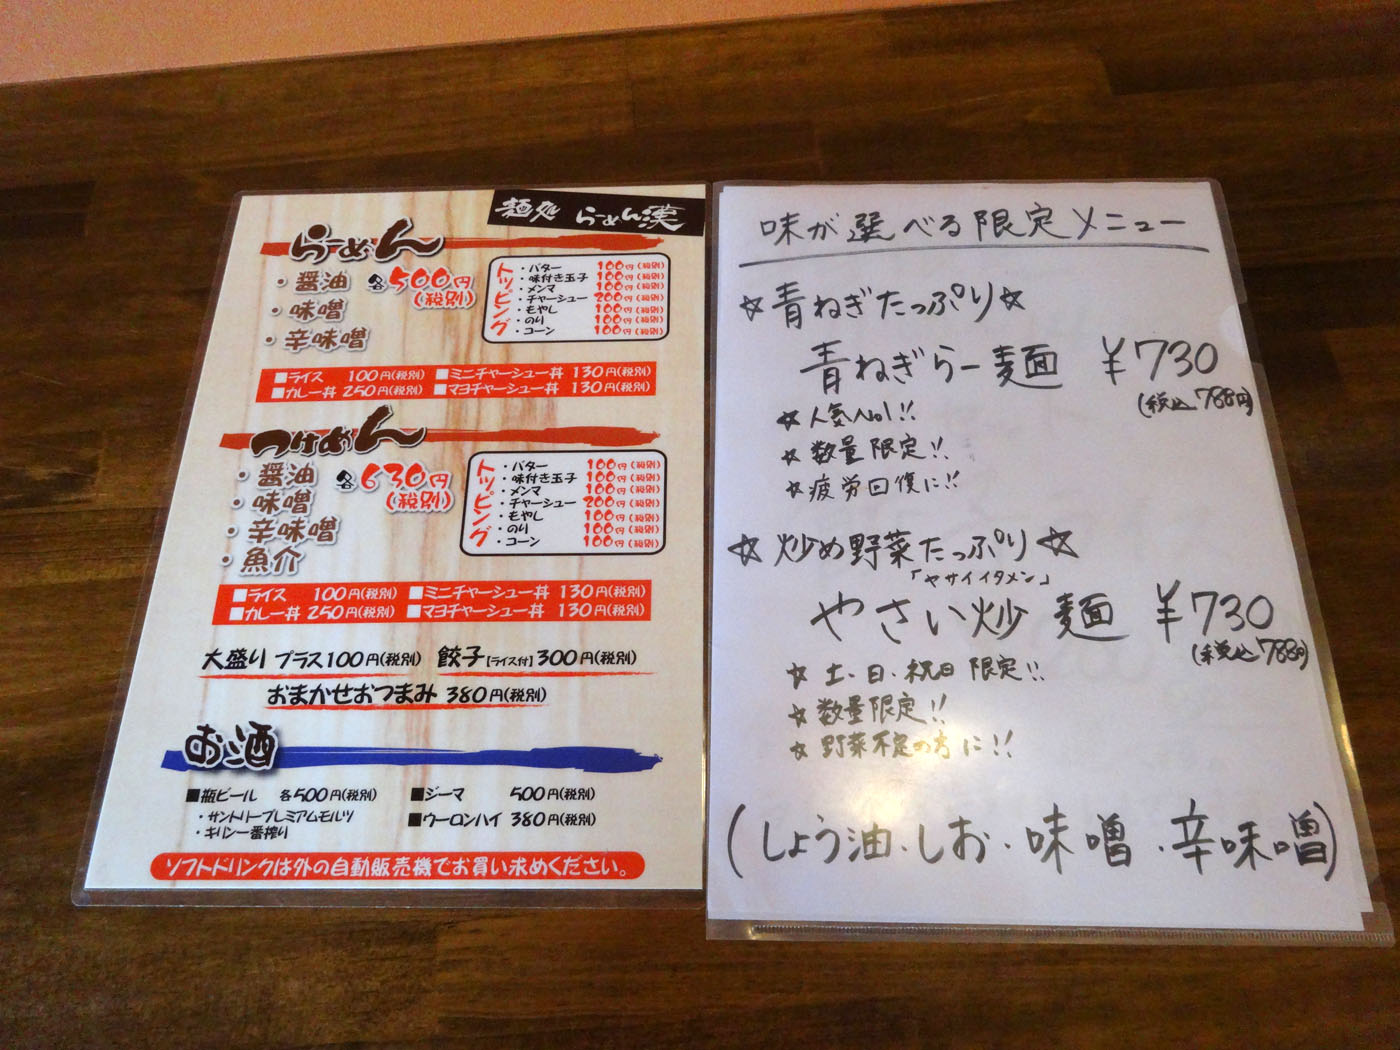 麺処 らーめん漢
らーめん
・醤油 各500円(税別)
・味噌
・辛味噌
トッピング
・バター 100円(税別)
・味付き玉子 100円(税別)
・メンマ 100円(税別)
・チャーシュー 200円(税別)
・もやし 100円(税別)
・のり 100円(税別)
・コーン 100円(税別)
■ライス 100円(税別) ■ミニチャーシュー丼 130円(税別)
■カレー丼 250円(税別) ■マヨチャーシュー丼 130円(税別)
つけめん
・醤油 各630円(税別)
・味噌
・辛味噌
・魚介
トッピング
・バター 100円(税別)
・味付き玉子 100円(税別)
・メンマ 100円(税別)
・チャーシュー 200円(税別)
・もやし 100円(税別)
・のり 100円(税別)
・コーン 100円(税別)
■ライス 100円(税別) ■ミニチャーシュー丼 130円(税別)
■カレー丼 250円(税別) ■マヨチャーシュー丼 130円(税別)
大盛り プラス100円(税別) 餃子【ライス付】300円(税別)
おまかせおつまみ 380円(税別)
お酒
■瓶ビール 各500円(税別) ■ジーマ 500円(税別)
・サントリープレミアムモルツ ■ウーロンハイ 380円(税別)
・キリン一番搾り
ソフトドリンクは外の自動販売機でお買い求めください。
味が選べる限定メニュー
☆青ねぎたっぷり☆
青ねぎらー麺 ¥730
(税込788円)
☆人気No1!!
☆数量限定!!
☆疲労回復に!!
☆炒め野菜たっぷり☆
「ヤサイイタメン」
やさい炒麺 ¥730
(税込788円)
☆土、日、祝日限定!!
☆数量限定!!
☆野菜不足の方に!!
(しょう油・しお・味噌・辛味噌)